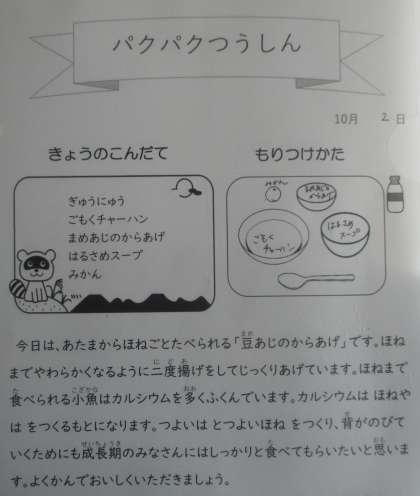 パクパクつうしん
10月 2日
きょうのこんだて
ぎゅうにゅう
ごもくチャーハン
まめあじのからあげ
はるさめスープ
みかん
もりつけかた
みかん
まめあじの
からあげ
ごもく
チャーハン
はるさめ
スープ
今日は、あたまからほねごとたべられる「豆あじのからあげ」です。ほね
までやわらかくなるように二度揚げをしてじっくりあげています。ほねまで
食べられる小魚はカルシウムを多くふくんでいます。カルシウムは ほねや
は をつくるもとになります。つよいは とつよいほね をつくり、背がのびて
いくためにも成長期のみなさんにはしっかりと食べてもらいたいと思いま
す。よくかんでおいしくいただきましょう。